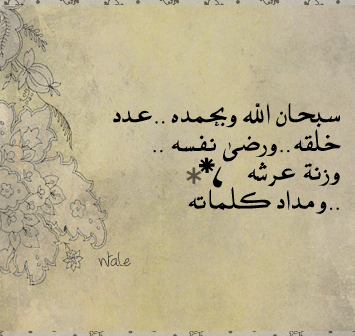 سبحان الله وبحمده ..عدد
خلقه..ورضىٰ نفسه ..
وزنة عرشه ،
..ومداد كلماته